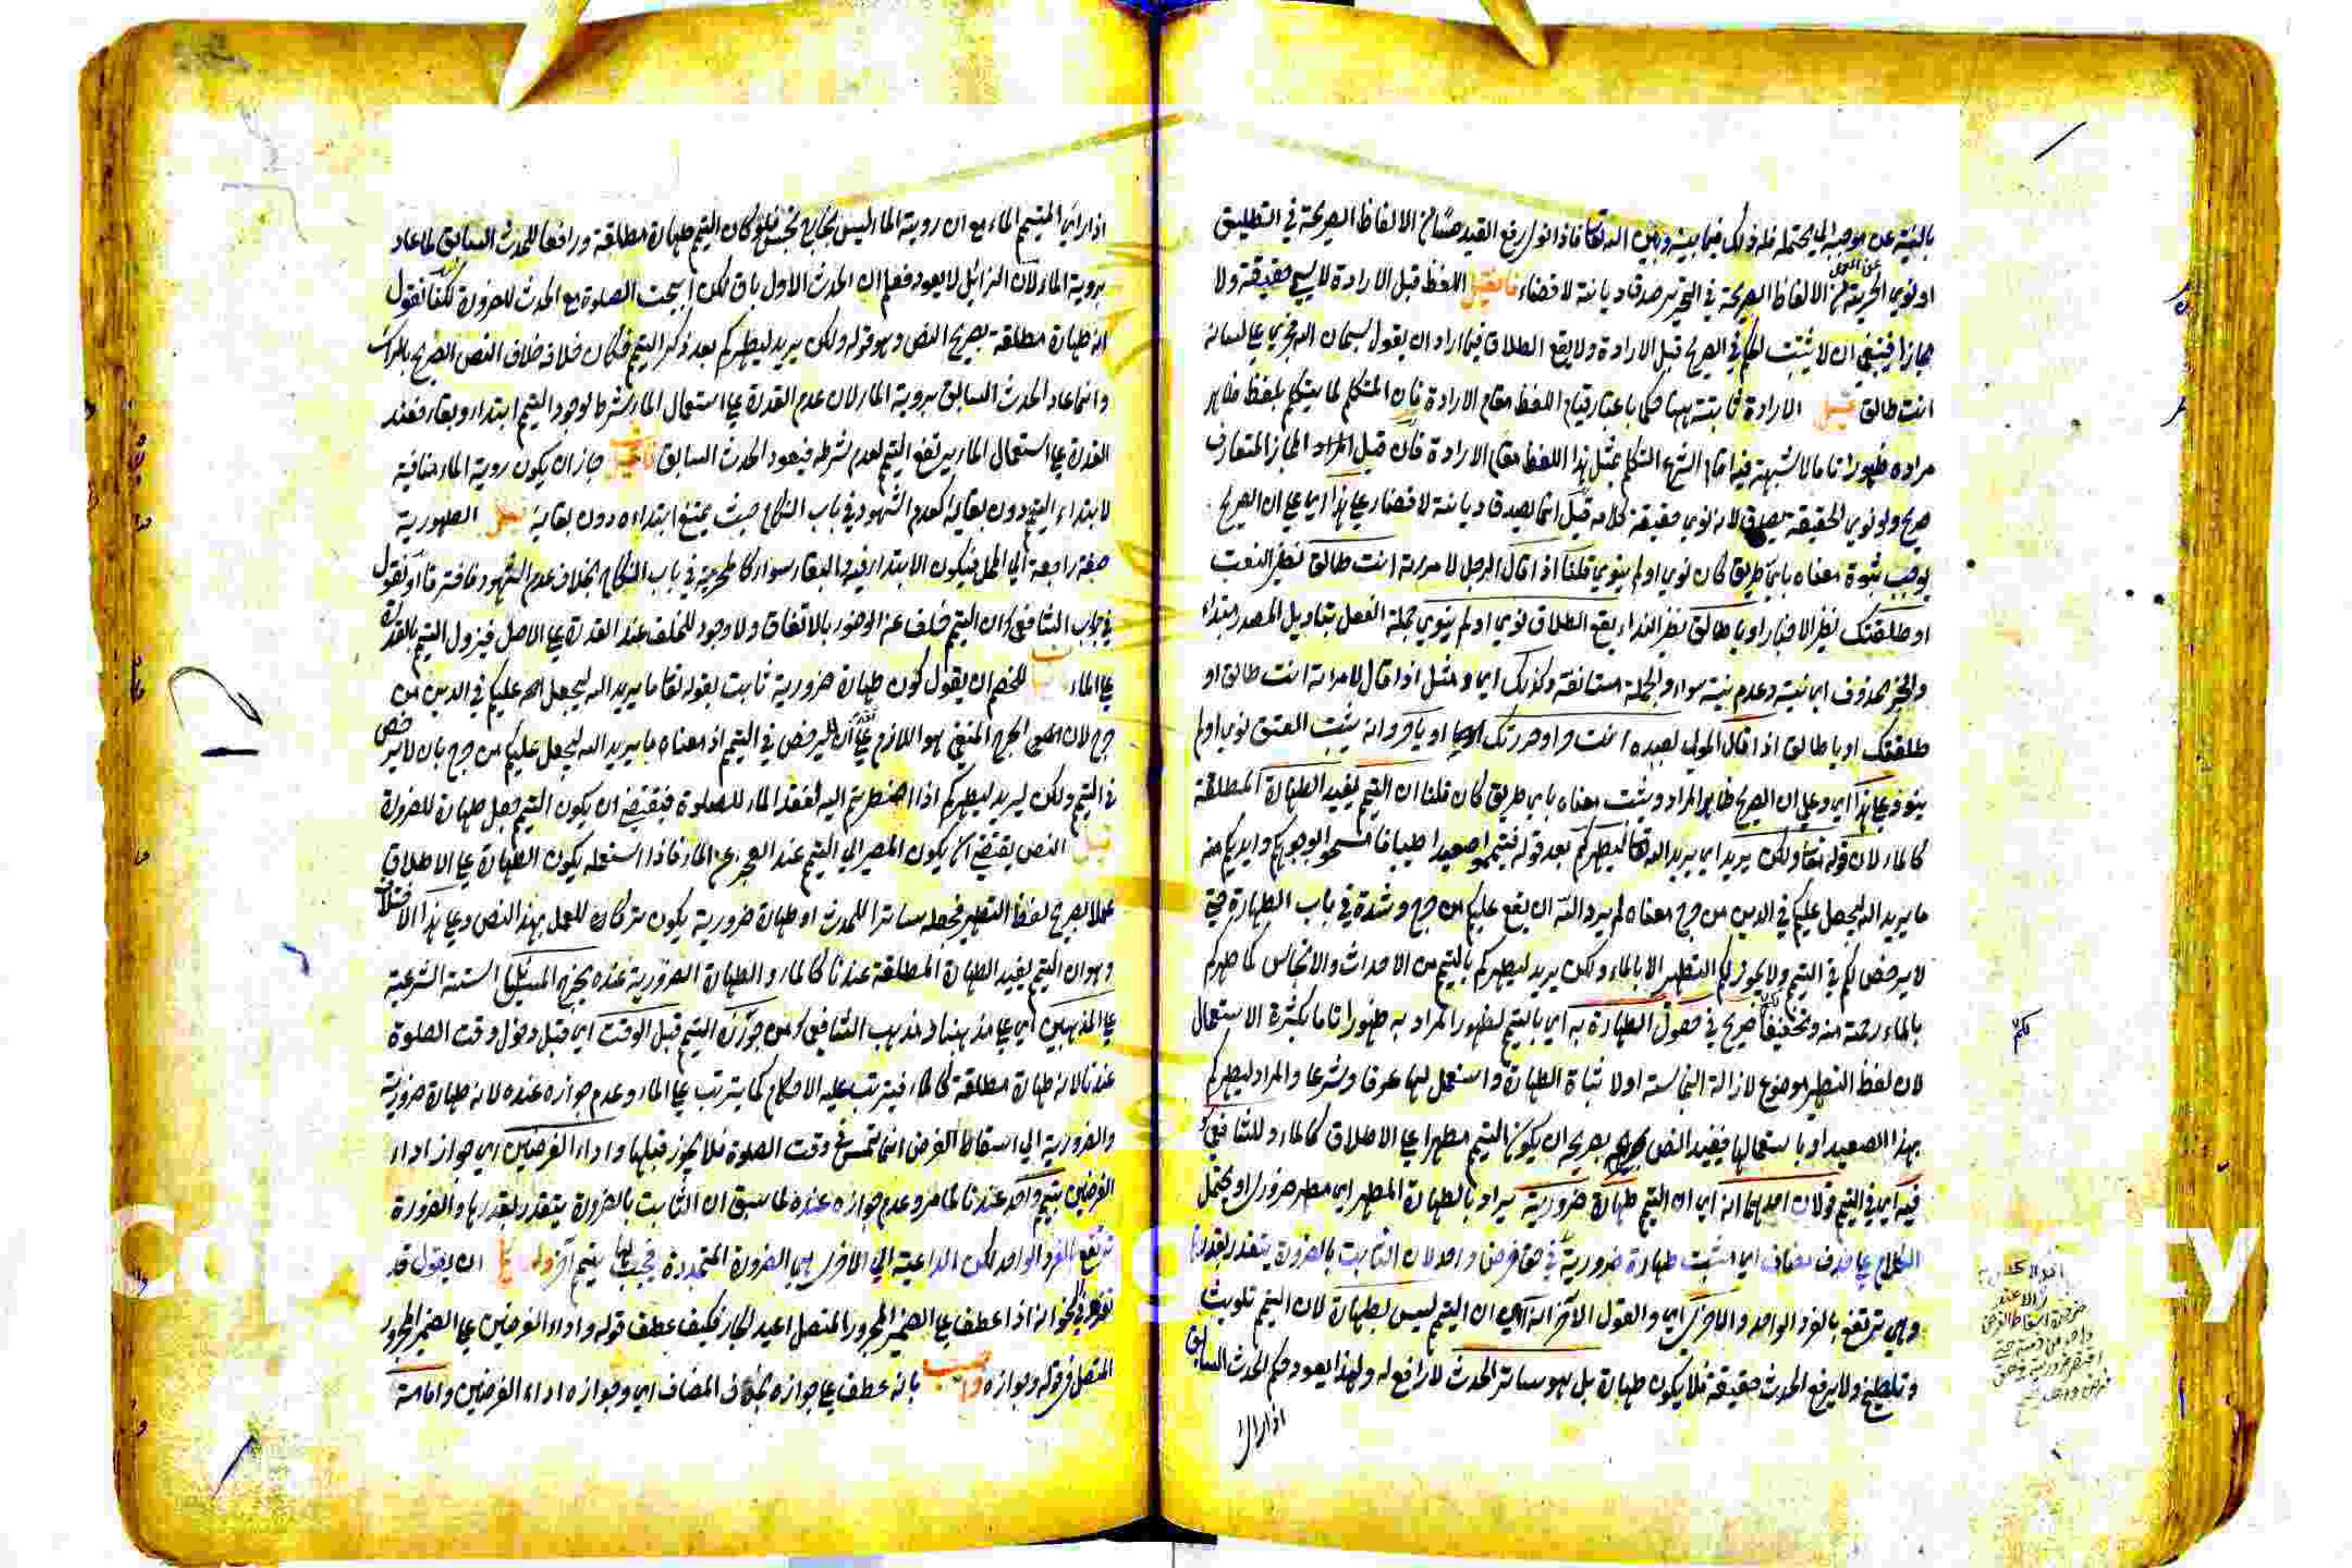 بالنية عن موجبه الى محتمله فله ذلك فيما بينه وبين الله تعالى فاذا نوى رفع القيد حسا من الالفاظ الصريحة في التطليق
او نوى الحرية من الالفاظ الصريحة في التحرير صدق ديانة لا قضاء فان قيل اللفظ قبل الارادة لا يسمى حقيقة ولا
مجازا فينبغي ان لا يثبت الحكم في الصريح قبل الارادة ولا يقع الطلاق فيما اراد ان يقول سبحان الله فجرى على لسانه
انت طالق قيل الارادة ثابتة ههنا حكما باعتبار قيام اللفظ مقام الارادة فان المتكلم لما يتكلم بلفظ ظاهر
مراده ظهورا تاما لا شبهة فيه اقام الشرع التكلم بمثل هذا اللفظ مقام الارادة فان قيل المراد المجاز المتعارف
صريح ولو نوى الحقيقة يصدق لانه نوى حقيقة كلامه قيل انما يصدق ديانة لا قضاء وعلى هذا اي على ان الصريح
يوجب ثبوت معناه باي طريق كان نوى او لم ينوى قلنا اذا قال الرجل لامرءته انت طالق نظر النعت
او طلقتك نظر الاخبار او يا طالق نظر النداء يقع الطلاق نوى او لم ينوى جملة الفعل بتاويل المصدر مبتداء
والخبر محذوف اي نيته وعدم نيته سواء والجملة مستانفة وكذلك اي ومثل اذا قال لامرءته انت طالق او
طلقتك او يا طالق اذا قال المولى لعبده انت حر او حررتك او يا حر وانه يثبت العتق نوى او لم
ينو وعلى هذا اي وعلى ان الصريح ظاهر المراد ويثبت معناه باي طريق كان قلنا ان التيمم يفيد الطهارة المطلقة
كالماء لان قوله تعالى ولكن يريد اي يريد الله تعالى ليطهركم بعد قوله فتيمموا صعيدا طيبا فامسحوا بوجوهكم وايديكم منه
ما يريد الله ليجعل عليكم في الدين من حرج معناه لم يرد الله ان يقع عليكم من حرج وشدة في باب الطهارة حتى
لا يرخص لكم في التيمم ولا يجوز لكم التطهير الا بالماء ولكن يريد ليطهركم بالتيمم من الاحداث والانجاس كما طهركم
بالماء رحمة منه وتخفيفا صريح في حصول الطهارة به اي بالتيمم لظهور المراد به ظهورا تاما بكثرة الاستعمال
لان لفظ التطهير موضوع لازالة النجاسة اولا ثبات الطهارة واستعمل لها عرفا وشرعا والمراد ليطهركم
بهذا الصعيد او باستعمالها فيفيد النص بصريحه ان يكون التيمم مطهرا على الاطلاق كالماء وللشافعي
فيه اي في التيمم قولان احدهما انه اي ان التيمم طهارة ضرورية يراد بالطهارة المطهر اي مطهر ضرورى او يحتمل
الكلام على حذف مضاف اي مثبت طهارة ضرورية في حق فرض واحد لان الثابت بالضرورة يتقدر بقدرها
وهي ترتفع بالفرد الواحد والاخر اي والقول الاخر انه اي ان التيمم ليس بطهارة لان التيمم تلويث
وتلطيخ ولا يرفع الحدث حقيقة فلا يكون طهارة بل هو ساتر للحدث لا رافع له ولهذا يعود حكم الحدث السابق
اذا راى
اذا راى المتيمم الماء مع ان روية الماء ليس بخارج نجس فلو كان التيمم طهارة مطلقة ورافعا للحدث السابق لما عاد
بروية الماء لان الزائل لا يعود فعلم ان الحدث الاول باق لكن ابيحت الصلوة مع الحدث للضرورة لكنا نقول
انه طهارة مطلقة بصريح النص وهو قوله ولكن يريد ليطهركم بعد ذكر التيمم فكان خلافه خلاف النص الصريح
وانما عاد الحدث السابق بروية الماء لان عدم القدرة على استعمال الماء شرط لوجود التيمم ابتداء وبقاء فعند
القدرة على استعمال الماء يرتفع التيمم لعدم شرطه فيعود الحدث السابق فان قيل جاز ان يكون روية الماء منافية
لابتداء التيمم دون بقائه كعدم الشهود في باب النكاح حيث يمنع ابتداءه دون بقائه قيل الطهورية
صفة راجعة الى المحل فيكون الابتداء فيه والبقاء سواء كالمحرمية في باب النكاح بخلاف عدم الشهود فافترقا او نقول
في جواب الشافعي ان التيمم خلف عن الوضوء بالاتفاق ولا وجود للخلف عند القدرة على الاصل فيزول التيمم بالقدرة
على الماء للخصم ان يقول كون طهارة ضرورية ثابت بقوله تعالى ما يريد الله ليجعل عليكم في الدين من
حرج لان الحرج المنفي هو اللازم على ان لا يرخص في التيمم اذ معناه ما يريد الله ليجعل عليكم من حرج بان لا يرخص
في التيمم ولكن يريد ليطهركم اذا اضطررتم اليه لفقد الماء للصلوة فيقتضي ان يكون التيمم جعل طهارة للضرورة
قيل النص يقتضي ان يكون المصير الى التيمم عند العجز عن الماء فاذا استعمله يكون الطهارة على الاطلاق
عملا بصريح لفظ التطهير فجعله ساترا للحدث او طهارة ضرورية يكون تركا للعمل بهذا النص وعلى هذا الاختلاف
وهو ان التيمم يفيد الطهارة المطلقة عندنا كالماء والطهارة الضرورية عنده يخرج المسائل الستة الشرعية
على المذهبين اي على مذهبنا ومذهب الشافعي من جوازه التيمم قبل الوقت اي قبل دخول وقت الصلوة
عندنا لانه طهارة مطلقة كالماء فيترتب عليه الاحكام كما يترتب على الماء وعدم جوازه عنده لانه طهارة ضرورية
والضرورية الى اسقاط الفرض انما تمس في وقت الصلوة فلا يجوز قبلها واداء الفرضين اي جواز اداء
الفرضين بتيمم واحد عندنا لما مر وعدم جوازه عنده لما سبق ان الثابت بالضرورة يتقدر بقدرها والضرورة
ترتفع بالفرد الواحد لكن الداعية الى الاخر هي الضرورة المتجددة فيجب لها تيمم اخر ان يقول قد
تقرر في النحو انه اذا عطف على الضمير المجرور المتصل اعيد الجار فكيف عطف قوله واداء الفرضين على الضمير المجرور
المتصل في قوله وجوازه بانه عطف على جوازه بحذف المضاف اي وجوازه اداء الفرضين وامامة